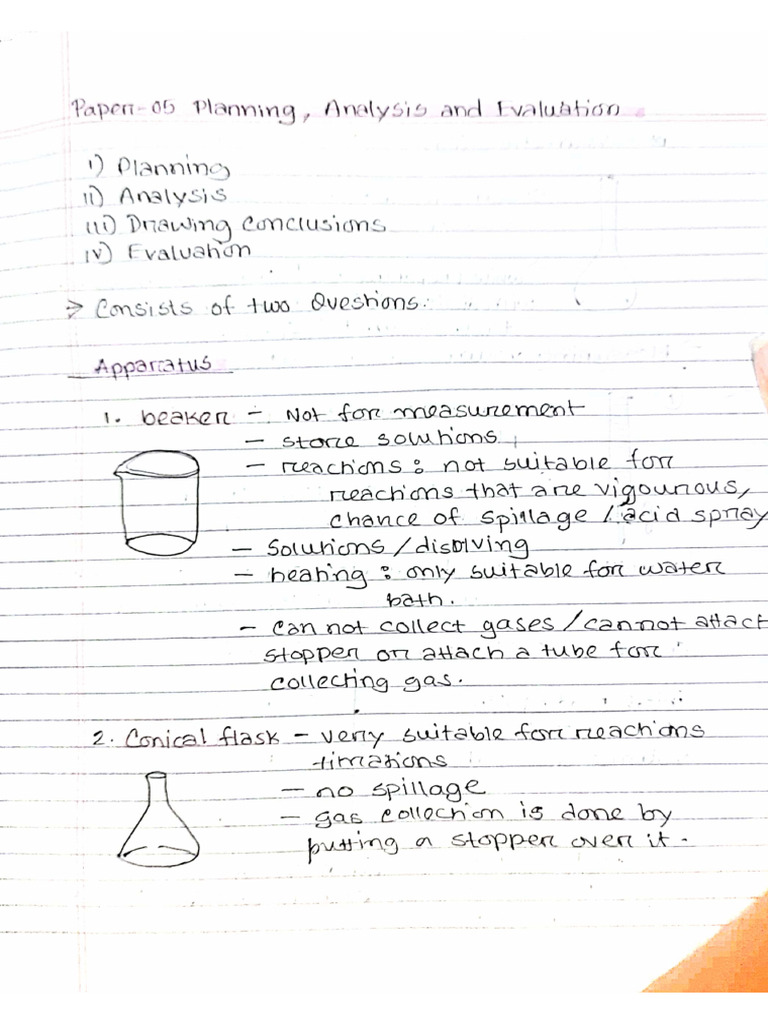 Paper-05 Planning, Analysis and Evaluation
i) Planning
ii) Analysis
iii) Drawing conclusions
iv) Evaluation
> Consists of two Questions.
Apparatus
1. beaker - Not for measurement
- store solutions
- reactions : not suitable for
reactions that are vigourous,
chance of spillage / acid spray
- Solutions / disolving
- heating : only suitable for water
bath.
- can not collect gases / cannot attach
stopper or attach a tube for
collecting gas.
2. Conical flask - very suitable for reactions
titrations
- no spillage
- gas collection is done by
putting a stopper over it.